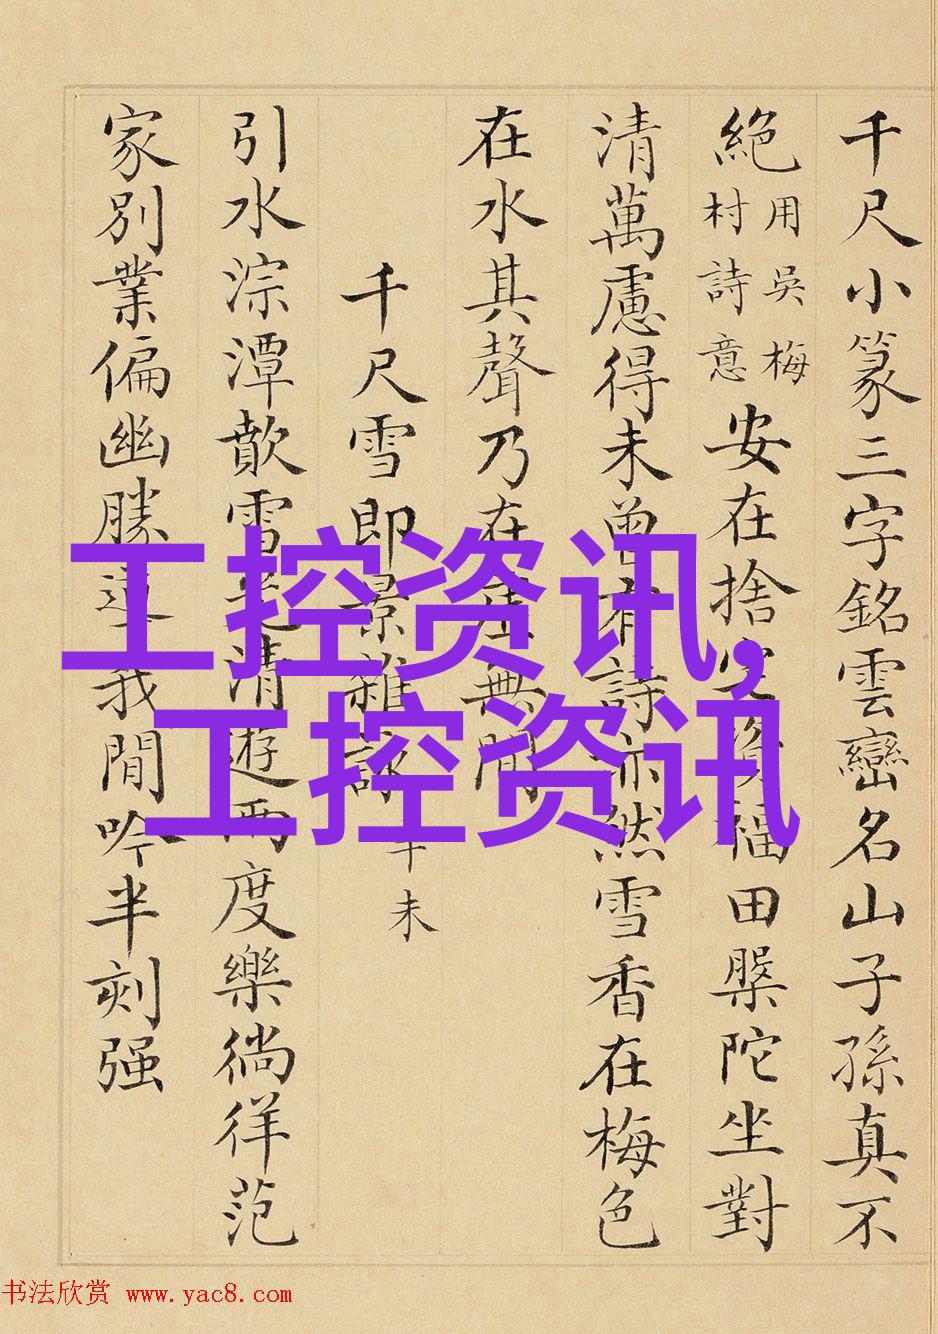 千尺小篆三字銘雲巒名山子孫真不
絕用吳梅村詩意安在捨宅資福田槃陀坐對
清萬慮得未曾有詩亦然雪香在梅色
在水其聲乃在無間
千尺雪即景雜詠辛未
引水淙潭歕雪清遊兩度樂徜徉范
家別業偏幽勝遲我閒吟半刻强
工控资讯,
工控资讯
书法欣赏 www.yac8.com